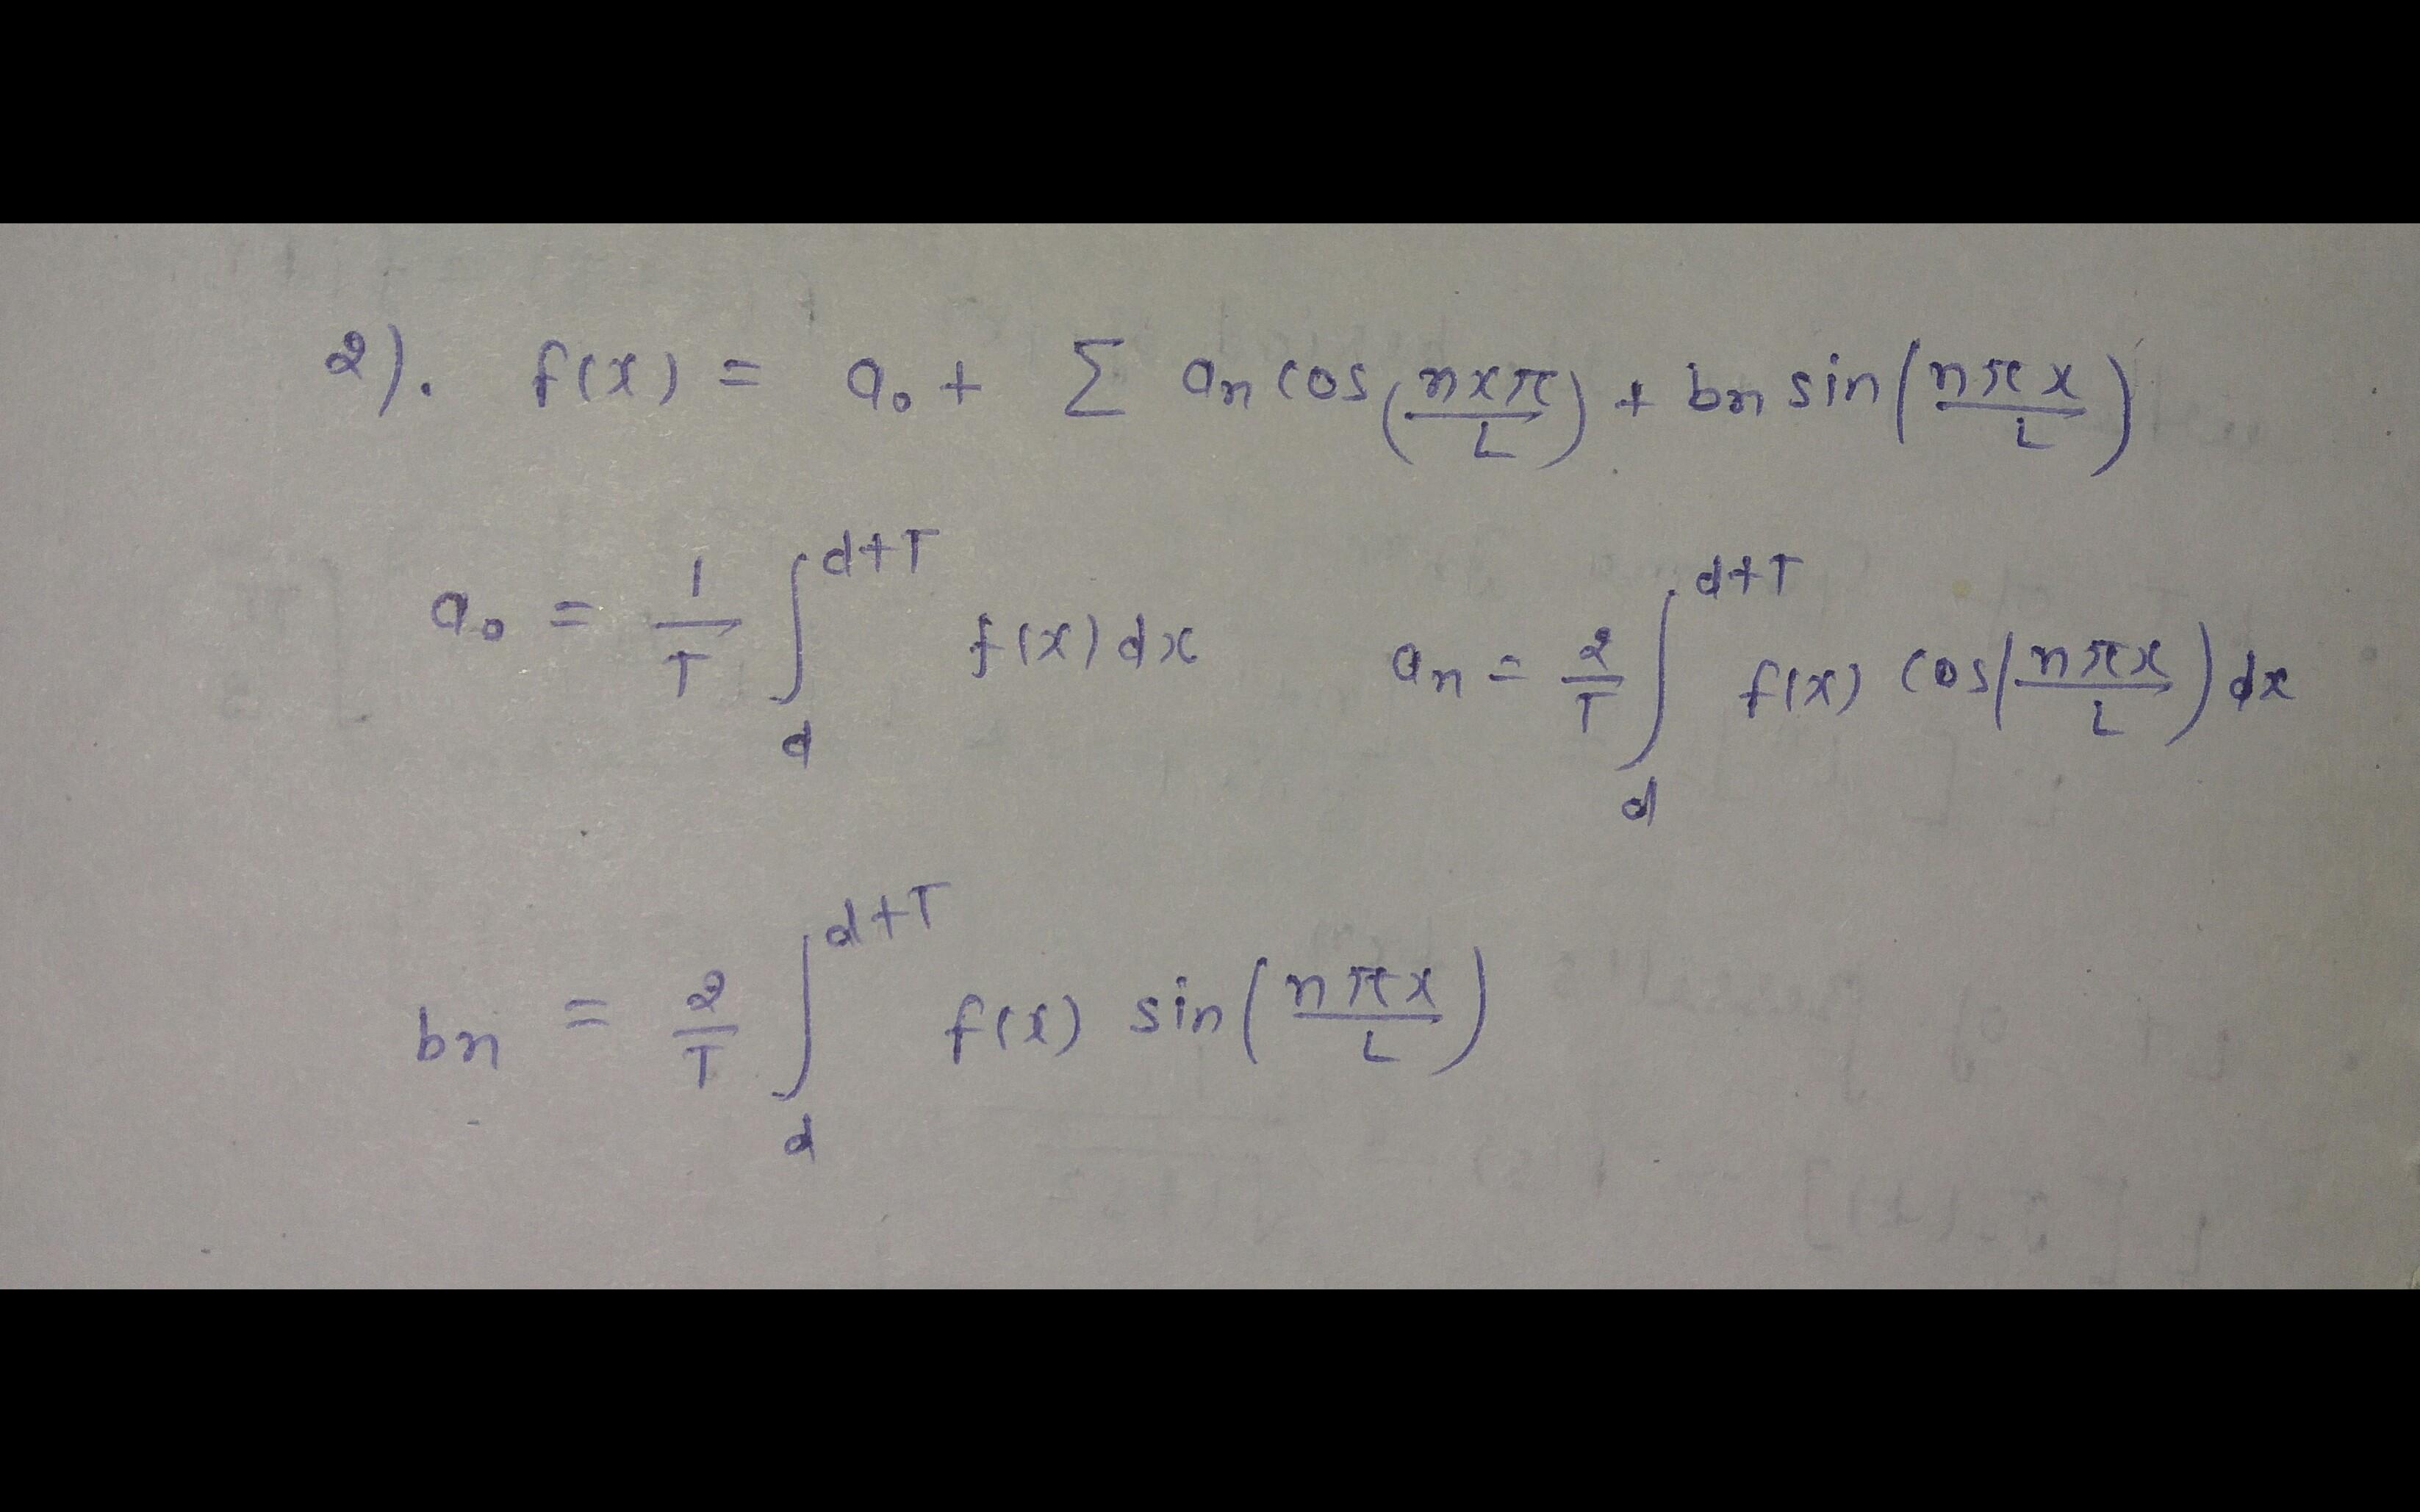 2). f(x) = a₀ + Σ aₙ cos(nxπ/L) + bₙ sin(nπx/L)
a₀ = 1/T ∫_d^{d+T} f(x) dx    aₙ = 2/T ∫_d^{d+T} f(x) cos(nπx/L) dx
bₙ = 2/T ∫_d^{d+T} f(x) sin(nπx/L)